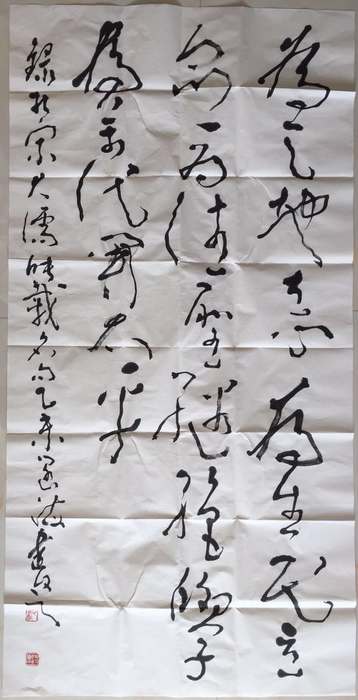 為天地立心為生民立
命為往聖繼絕學
為万代開太平
錄北宋大儒張載名句乙未